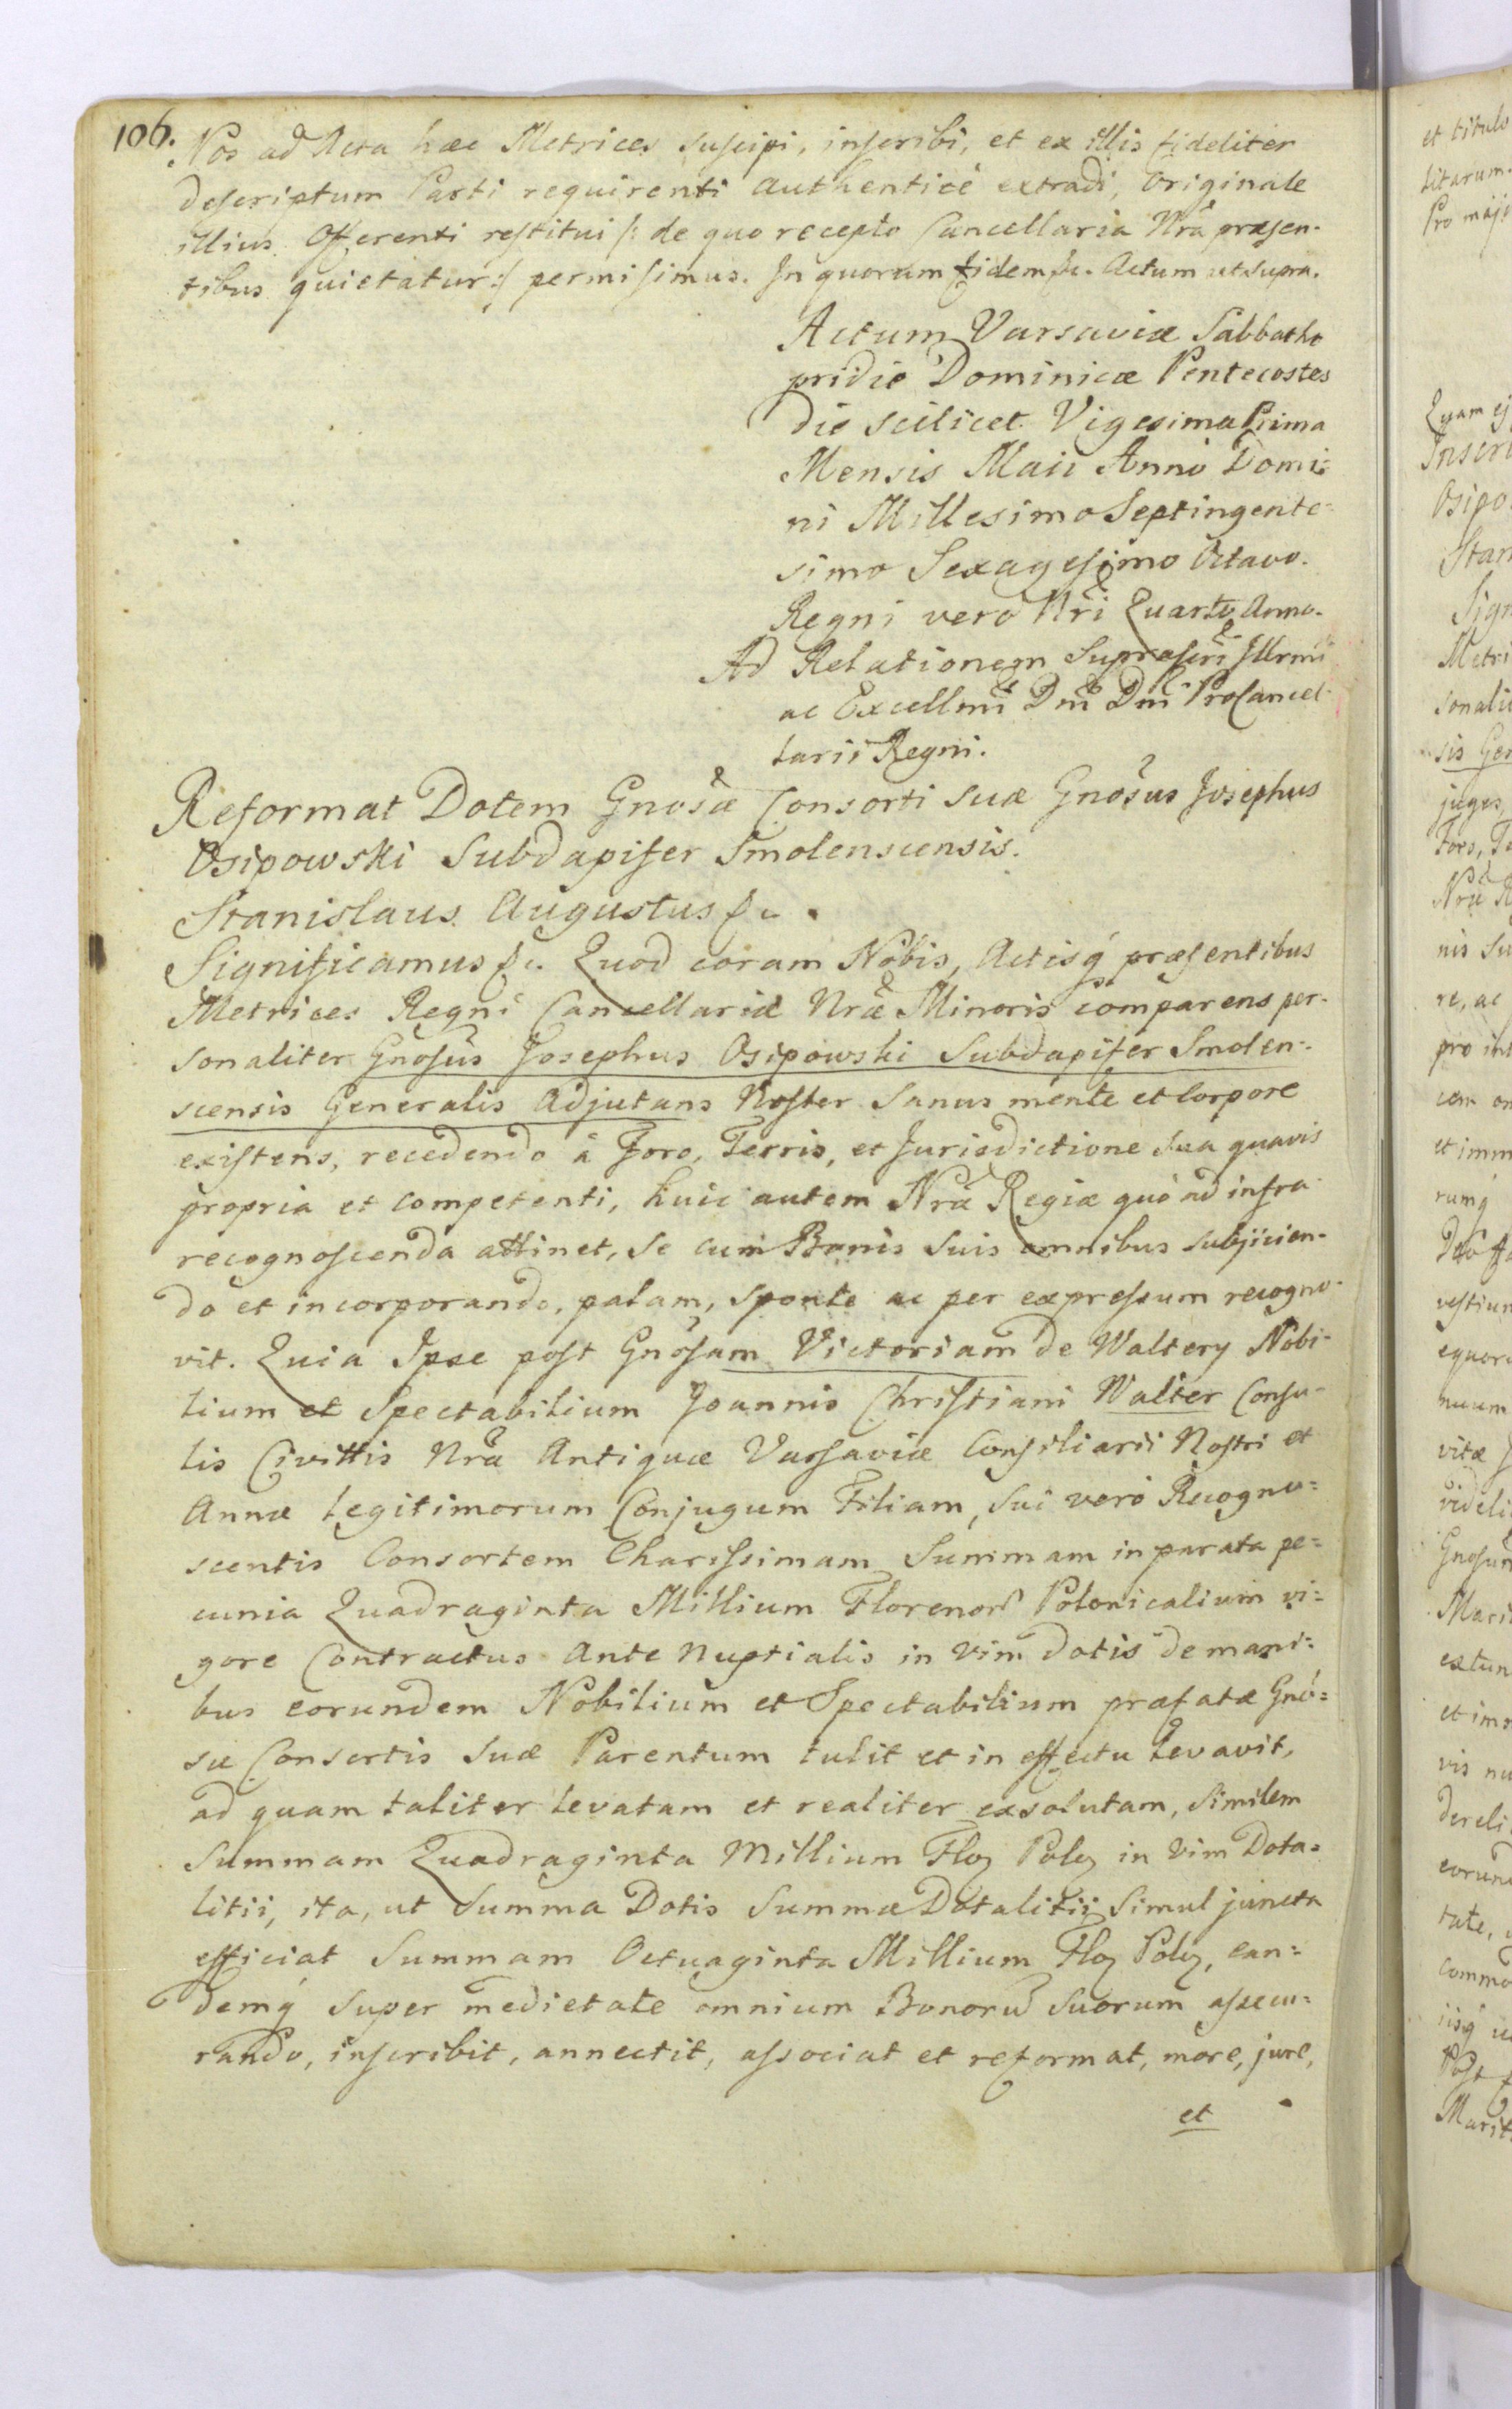 106.
Nos ad Acta hæc Metrices suscipi, inscribi, et ex illis fideliter
descriptum Parti requirenti authenticè extradi, Originale
illius Offerenti restitui /: de quo recepto Cancellaria Nrã præsen-
tibus quietatur :/ permisimus. In quorum fidem &c. Actum ut supra.
Actum Varsaviæ Sabbatho
pridie Dominicæ Pentecostes
die scilicet Vigesima Prima
Mensis Maii Anno Domi:
ni Millesimo Septingente=
simo Sexagesimo Octavo.
Regni vero Nri Quarto Anno.
Ad Relationem Suprascri Illrmi
ac Excellmi Dni Dni ProCancel-
larii Regni.
Reformat Dotem Gnosæ Consorti suæ Gnosus Josephus
Osipowski Subdapifer Smolenscensis.
Stanislaus Augustus &c.
Significamus &c. Quod coram Nobis, Actisq́ præsentibus
Metrices Regni Cancellariæ Nræ Minoris comparens per-
sonaliter Gnosus Josephus Osipowski Subdapifer Smolen-
scensis Generalis Adjutans Noster Sanus mente et Corpore
existens, recedendo à Foro, Terris, et Jurisdictione sua quavis
propria et competenti, huic autem Nræ Regiæ quò ad infra
recognoscenda attinet, se cum Bonis suis omnibus subjicien-
do et incorporando, palam, sponte ac per expressum recogno-
vit. Quia Ipse post Gnosam Victoriam de Waltery Nobi-
lium et Spectabilium Joannis Christiani Walter Consu-
lis Civittis Nræ Antiquæ Varsaviæ Consiliarii Nostri et
Annæ Legitimorum Conjugum Filiam, sui verò Recogno=
scentis Consortem Charissimam Summam in parata pe=
cunia Quadraginta Millium Florenor Polonicalium vi=
gore Contractus Ante Nuptialis in vim dotis de mani=
bus eorundem Nobilium et Spectabilium præfatæ Gno=
sæ Consortis Suæ Parentum tulit et in effectu levavit,
ad quam taliter levatam et realiter exsolutam, similem
Summam Quadraginta Millium Floꝝ Polꝝ in vim Dota=
litii, ita, ut Summa Dotis Summæ Dotalitii simul juncta
efficiat Summam Octuaginta Millium Floꝝ Polꝝ, ean=
demq́ super medietate omnium Bonorũ suorum assecu=
rando, inscribit, annectit, associat et reformat, more, jure,
et
et titulo
litarum.
Quam ej
Osipo
Metri
sonalit
sis Gen
juges,
nis Su
re, ac
pro int
et imm
rumq́
nuum
vitæ
videli
Gnosum
extun
et im
vis nu
dereli
eorund
tate,
commo
Post
Marit